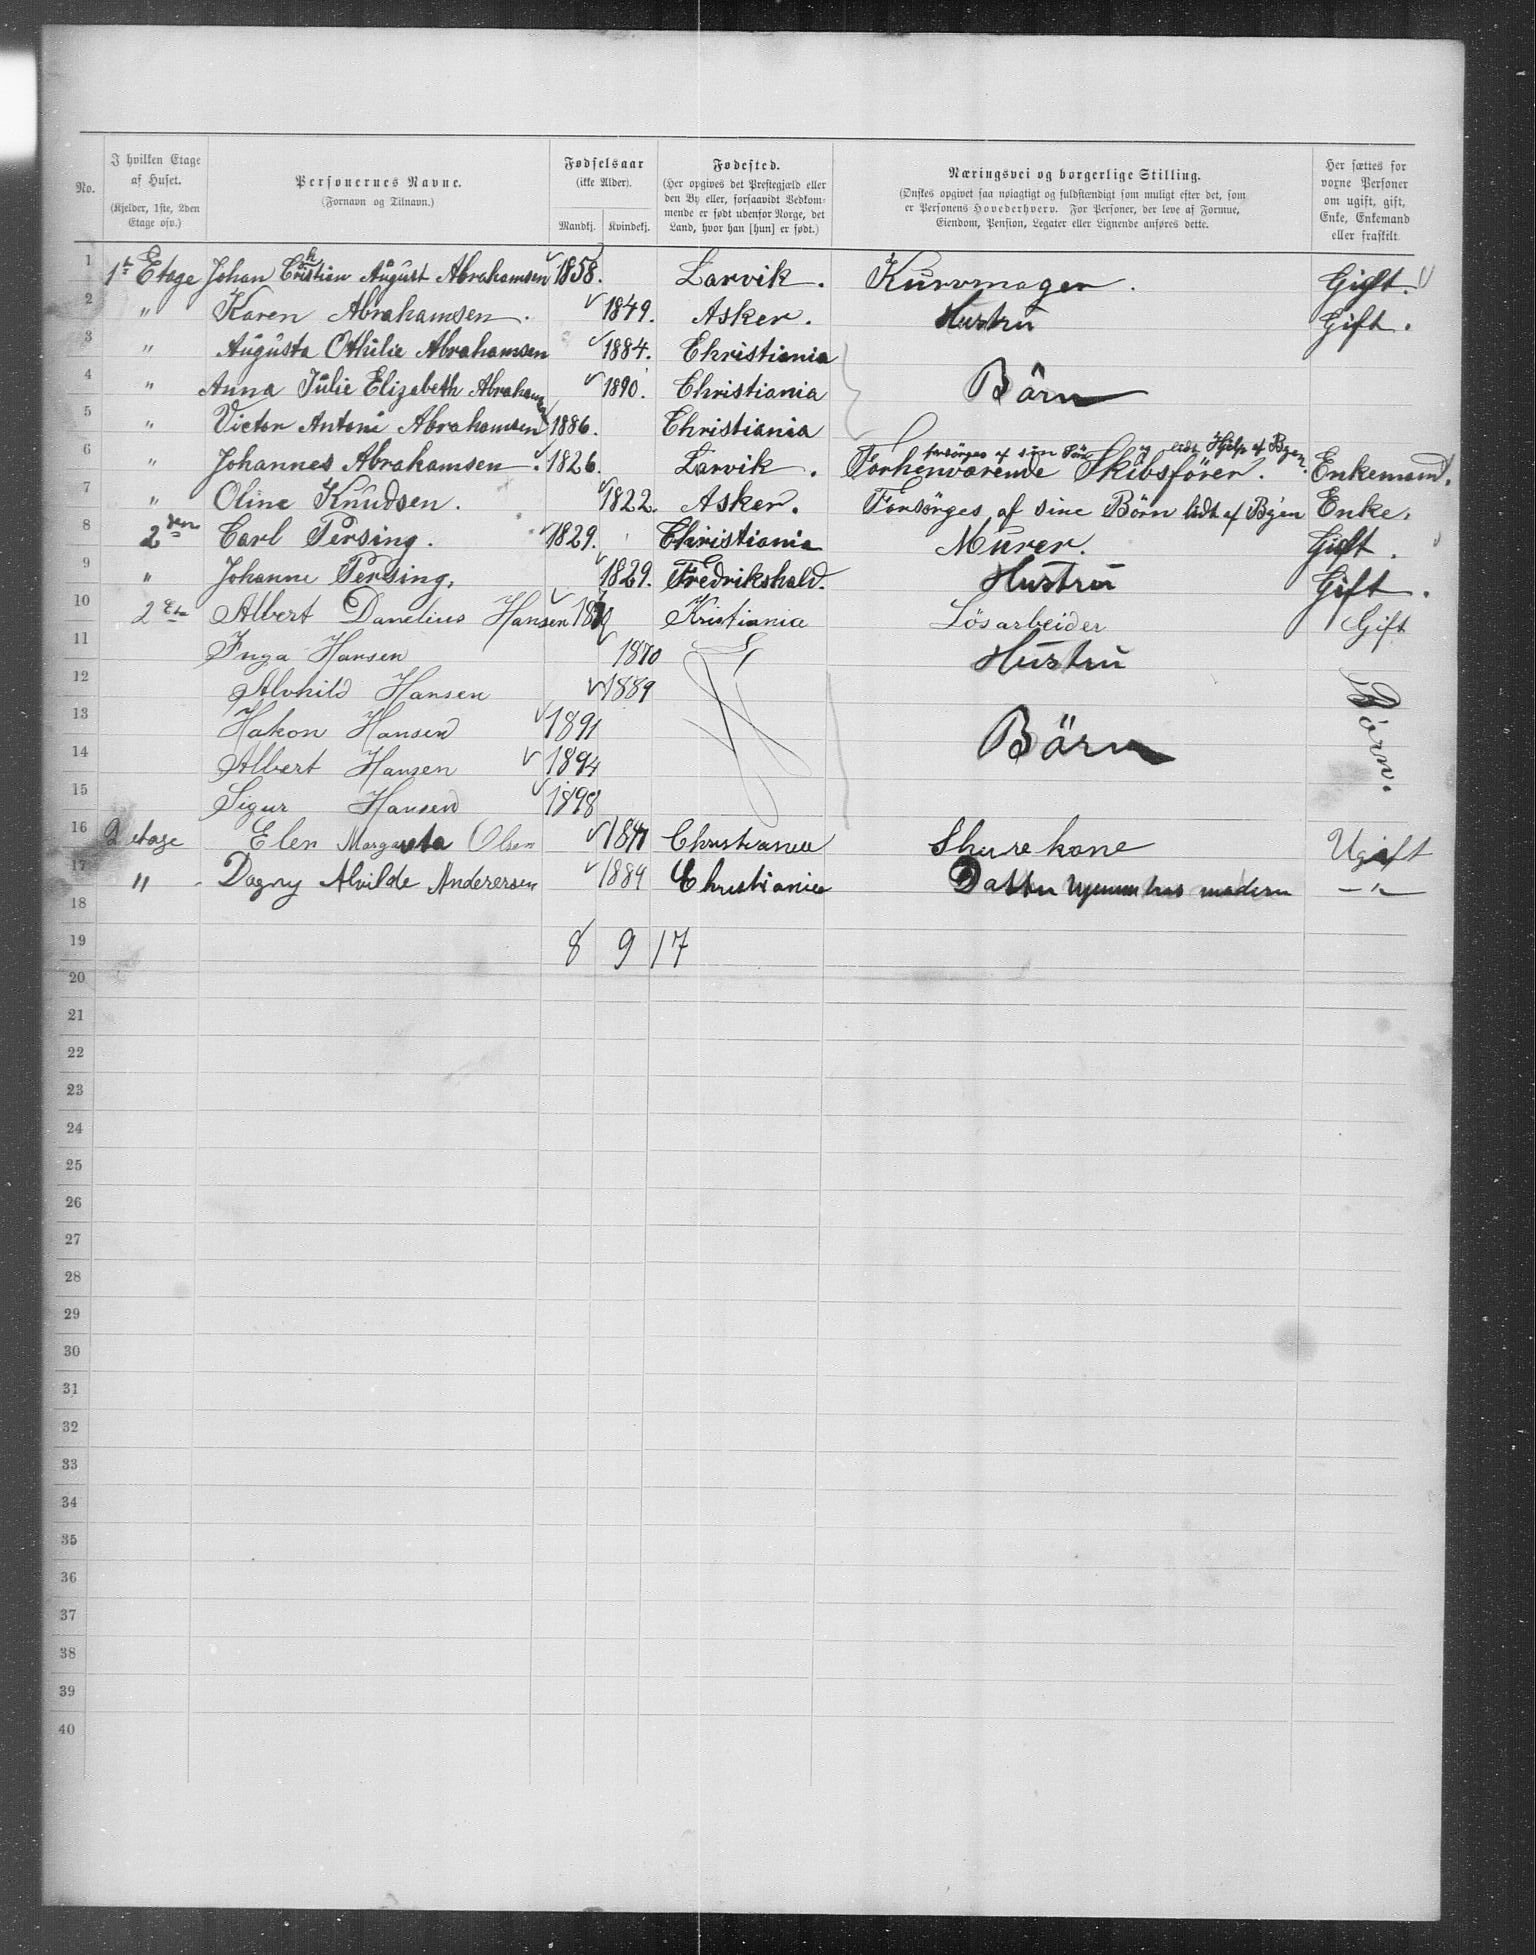 No. I hvilken Etage af Huset. (Kjelder, 1ste, 2den Etage osv.) Personernes Navne. (Fornavn og Tilnavn.) Fødselsaar (ikke Alder). Mandkj. Kvindekj. Fødested. (Her opgives det Prestegjæld eller den By eller, forsaavidt Vedkommende er født udenfor Norge, det Land, hvor han [hun] er født.) Næringsvei og borgerlige Stilling. (Ønskes opgivet saa nøiagtigt og fuldstændigt som muligt efter det, som er Personens Hovederhverv. For Personer, der leve af Formue, Eiendom, Pension, Legater eller Lignende anføres dette. Her sættes for voxne Personer om ugift, gift, Enke, Enkemand eller fraskilt.
1 1st Etage Johan Christian August Abrahamsen 1858. Larvik. Kurvmager. Gift.
2 " Karen Abrahamsen. 1849. Asker. Hustru Gift.
3 " Augusta Othilie Abrahamsen 1884. Christiania
4 " Anna Julie Elizabeth Abrahamsen 1890. Christiania Börn
5 " Victor Antoni Abrahamsen 1886. Christiania
forsörges af sin Sön og lidt Hjelp af Byen.
6 " Johannes Abrahamsen. 1826. Larvik. Forhenværende Skibsförer. Enkemand.
7 " Oline Knudsen. 1822. Asker. Forsörges af sine Börn lidt af Byen Enke.
8 2den Carl Persing. 1829. Christiania Murer. Gift.
9 " Johanne Persing. 1829. Fredrikshald. Hustru Gift.
10 2 Et Albert Danelius Hansen Kristiania Lösarbeider Gift
11 Inga Hansen 1870 Hustru
12 Alvhild Hansen 1889 Börn.
13 Hakon Hansen 1891 Börn
14 Albert Hansen 1894
15 Sigur Hansen 1898
16 2 etage Elen Margareta Olsen Christiania Skurekone Ugift
17 " Dagny Alvilde Anderersen 1889 Christiania Datter hjemme hos moderen — " —
18
19 8 9 17
20
21
22
23
24
25
26
27
28
29
30
31
32
33
34
35
36
37
38
39
40